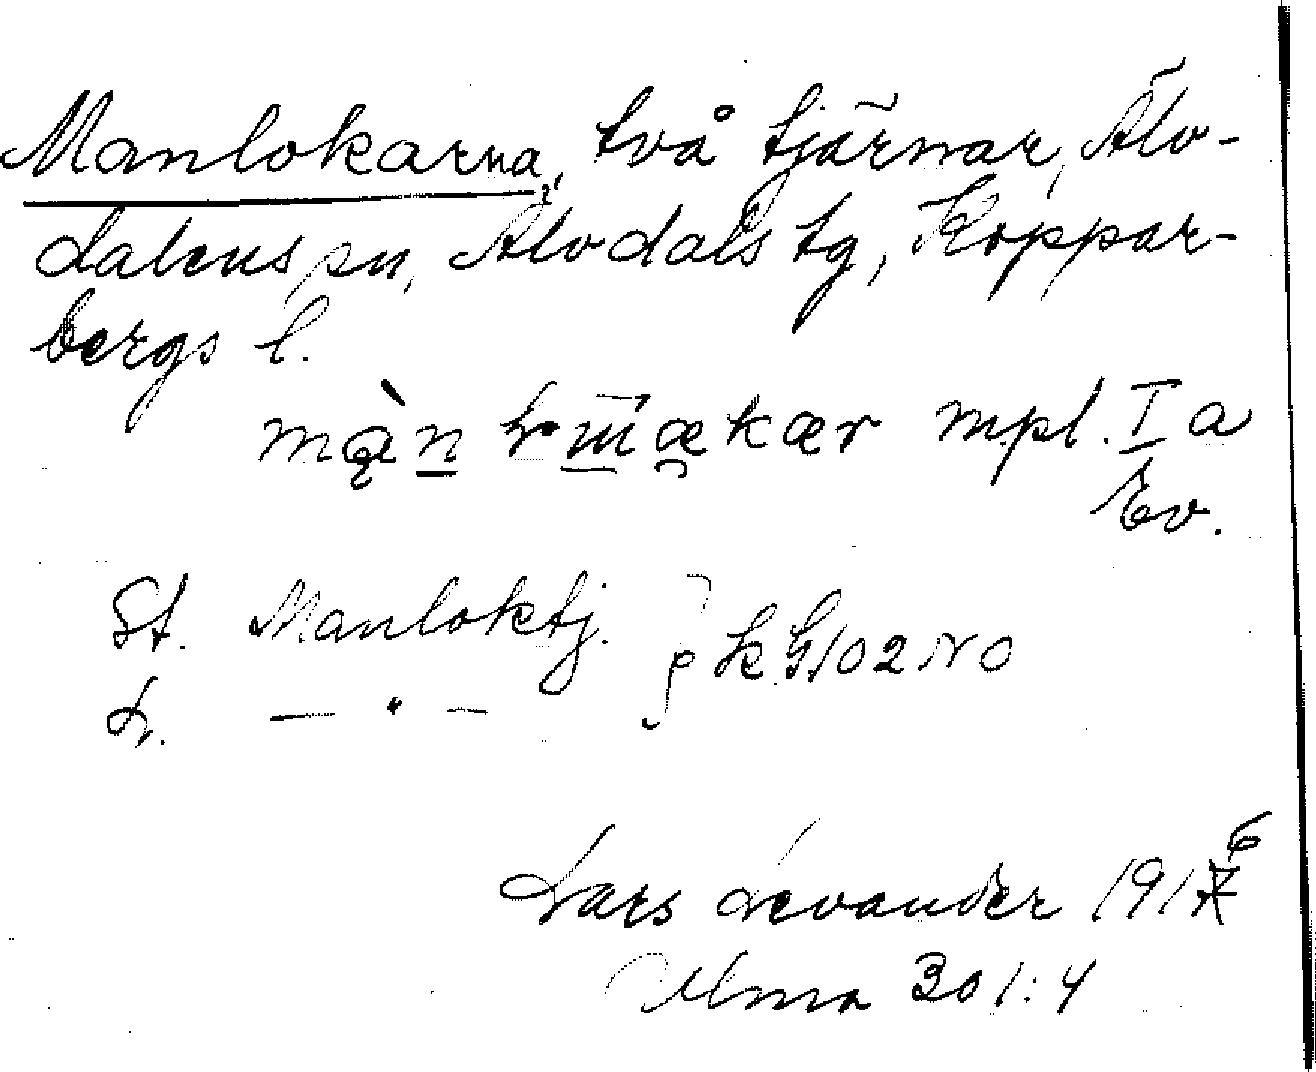 Manlokarna, två tjärnar, Älv-
dalens sn, Älvdals tg, Koppar-
bergs l.
mpl. I a
Ev.
St. Manloktj.
L. — " —
Lars Levander 1916
Ulma 301:4